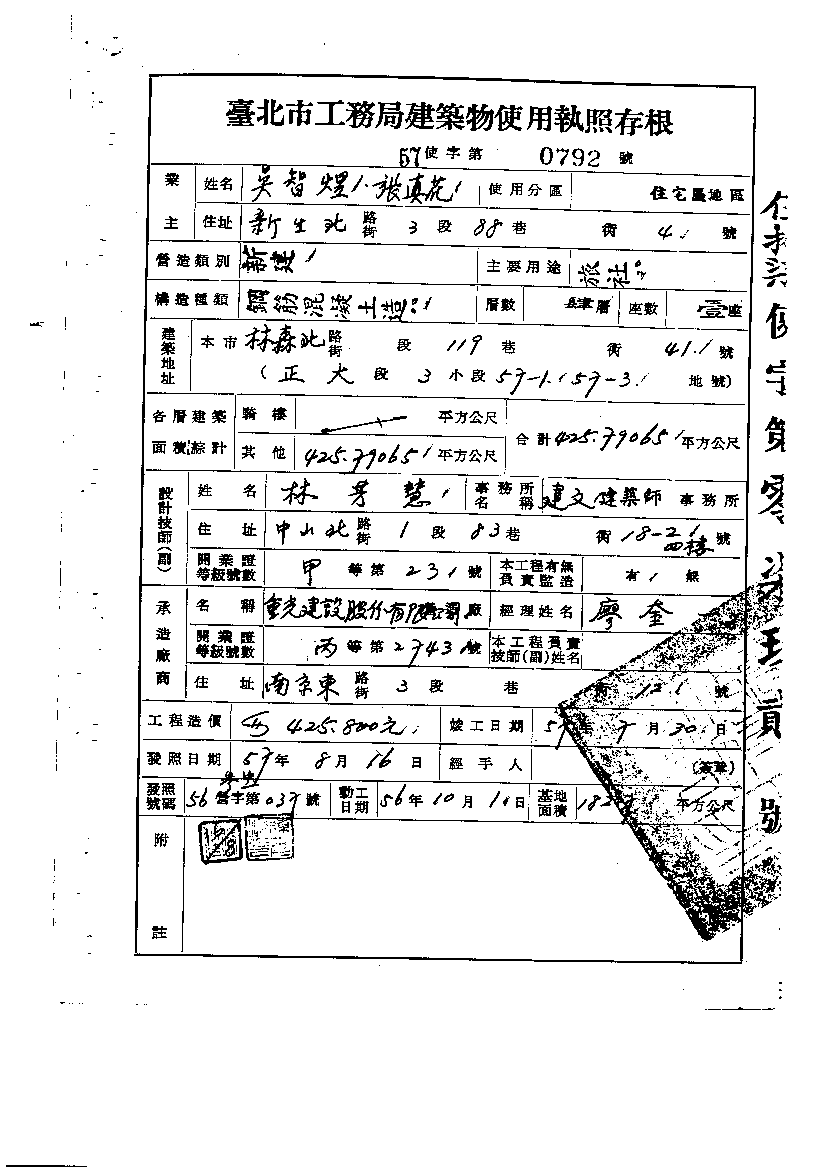 臺北市工務局建築物使用執照存根
57使字第 0792 號
業主 姓名 吳智煜、張真花 使用分區 住宅區地區
住址 新生北路街 3 段 88 巷 街 4 號
營造類別 新建 主要用途 旅社
構造種類 鋼筋混凝土造 層數 肆層 座數 壹座
建築地址 本市 林森北路街 段 119 巷 街 41 號
(正大段 3 小段 57-1、57-3 地號)
各層建築面積綜計 騎樓 平方公尺 合計 425.79065 平方公尺
其他 425.79065 平方公尺
設計技師(副) 姓名 林芳慧 事務所名稱 建文建築師事務所
住址 中山北路街 1 段 83 巷 街 18-2 四樓 號
開業證等級號數 甲等第 231 號 本工程有無負責監造 有 無
承造廠商 名稱 重光建設股份有限公司廠 經理姓名 廖奎一
開業證等級號數 丙等第 2743 號 本工程負責技師(副)姓名
住址 南京東路街 3 段 巷 街 12 號
工程造價 425.800元 竣工日期 57年 7月 30日
發照日期 57年 8月 16日 經手人 (簽章)
發照號碼 56 營字第 037 號 動工日期 56年 10月 1日 基地面積 182 平方公尺
附註
使字第零柒玖貳號